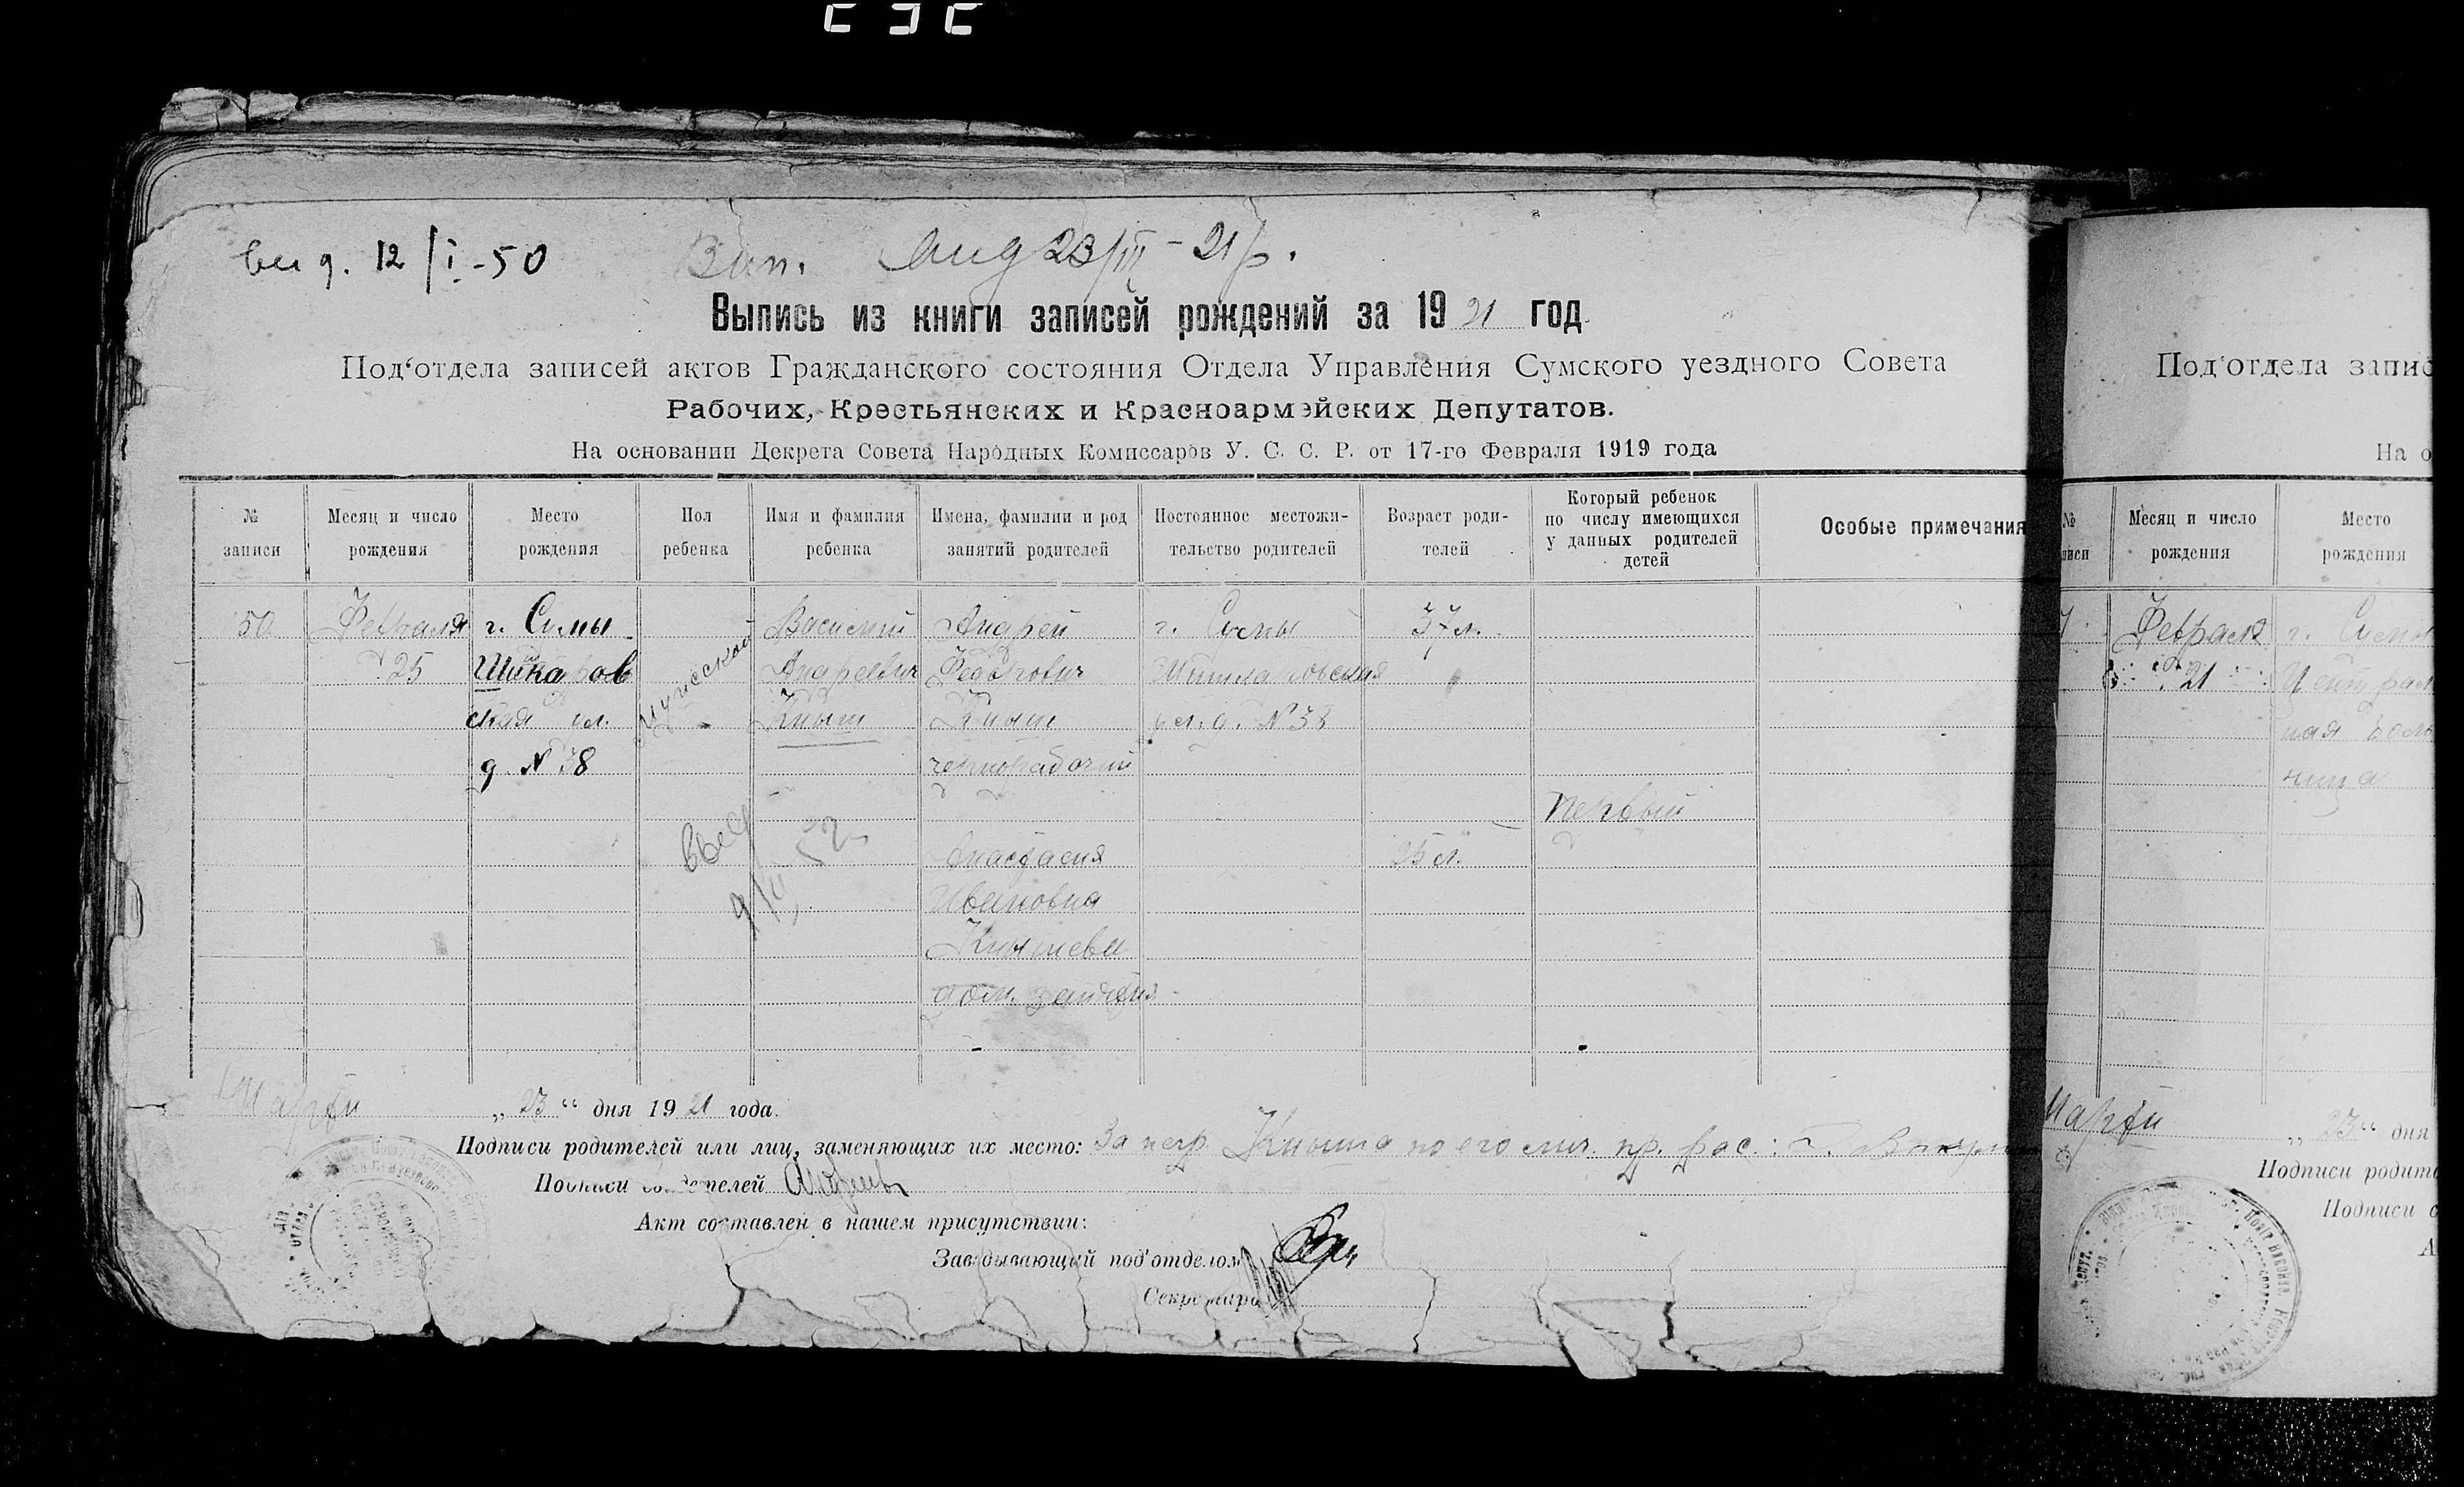 12/I-50
23/III-21 р.
Выпись из книги записей рождений за 1921 год
Под‘отдела записей актов Гражданского состояния Отдела Управления Сумского уездного Совета
Рабочих, Крестьянских и Красноармейских Депутатов.
На основании Декрета Совета Народных Комиссаров У. С. С. Р. от 17-го Февраля 1919 года
№ записи
Месяц и число рождения
Место рождения
Пол ребенка
Имя и фамилия ребенка
Имена, фамилии и род занятий родителей
Постоянное местожительство родителей
Возраст родителей
Который ребенок по числу имеющихся у данных родителей детей
Особые примечания
50
Февраля
25
г. Сумы
ская ул.
д. № 38
Мужской
Василий
Андреевич
Кныш
Андрей
Федорович
Кныш
чернорабочий
г. Сумы
ул. д. № 38
37 л.
Первый
Анастасия
Ивановна
Кнышева
дом. занятия
Марта „23“ дня 1921 года.
Подписи родителей или лиц, заменяющих их место: За негр. Кныша по его лич. пр. рас.:
Подписи свидетелей
Акт составлен в нашем присутствии:
Заведывающий под'отделом
Секретарь
Под‘отдела
На о
Месяц и число
рождения
Место
рождения
Февраля
21
г. Сумы
Централь
ная боль
ница
Марта „23“ дня
Подписи
Подписи с